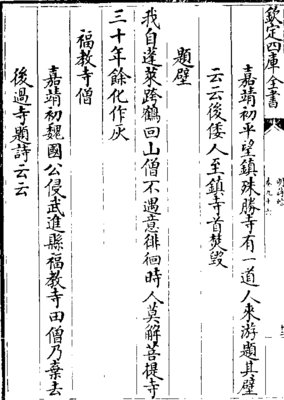 欽定四庫全書
嘉靖初平望鎮殊勝寺有一道人來游題其壁
云云後倭人至鎮寺首焚毀
題壁
我自蓬萊跨鶴回山僧不遇意徘徊時人莫解菩提寺
三十年餘化作灰
福教寺僧
嘉靖初魏國公侵武進縣福教寺田僧乃棄去
後過寺題詩云云